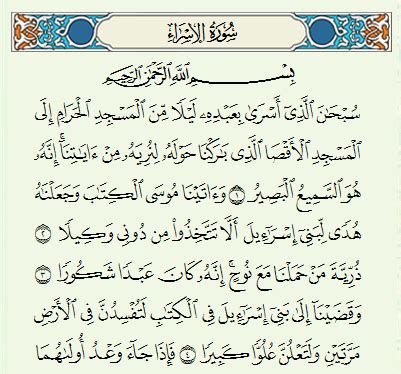 سُورَةُ الإِسْرَاءِ
بِسْمِ اللَّهِ الرَّحْمَٰنِ الرَّحِيمِ
سُبْحَٰنَ ٱلَّذِىٓ أَسْرَىٰ بِعَبْدِهِۦ لَيْلًا مِّنَ ٱلْمَسْجِدِ ٱلْحَرَامِ إِلَى
ٱلْمَسْجِدِ ٱلْأَقْصَا ٱلَّذِى بَٰرَكْنَا حَوْلَهُۥ لِنُرِيَهُۥ مِنْ ءَايَٰتِنَآ ۚ إِنَّهُۥ
هُوَ ٱلسَّمِيعُ ٱلْبَصِيرُ ١ وَءَاتَيْنَا مُوسَى ٱلْكِتَٰبَ وَجَعَلْنَٰهُ
هُدًى لِّبَنِىٓ إِسْرَٰٓءِيلَ أَلَّا تَتَّخِذُوا۟ مِن دُونِى وَكِيلًا ٢
ذُرِّيَّةَ مَنْ حَمَلْنَا مَعَ نُوحٍ ۚ إِنَّهُۥ كَانَ عَبْدًا شَكُورًا ٣
وَقَضَيْنَآ إِلَىٰ بَنِىٓ إِسْرَٰٓءِيلَ فِى ٱلْكِتَٰبِ لَتُفْسِدُنَّ فِى ٱلْأَرْضِ
مَرَّتَيْنِ وَلَتَعْلُنَّ عُلُوًّا كَبِيرًا ٤ فَإِذَا جَآءَ وَعْدُ أُولَىٰهُمَا